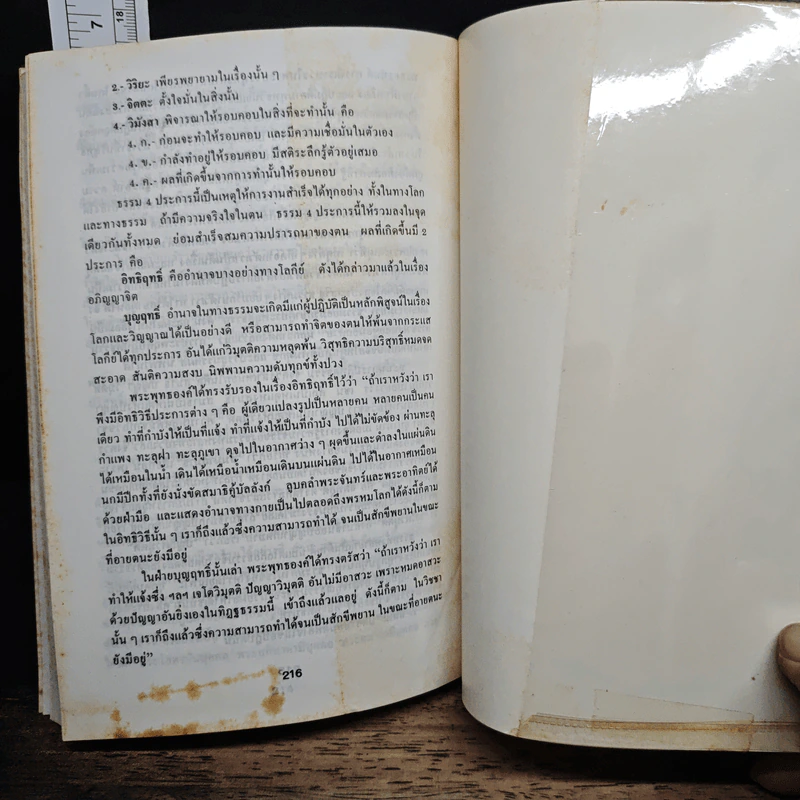 7
18
2.- วิริยะ เพียรพยายามในเรื่องนั้น ๆ
3.- จิตตะ ตั้งใจมั่นในสิ่งนั้น
4.- วิมังสา พิจารณาให้รอบคอบในสิ่งที่จะทำนั้น คือ
4. ก.- ก่อนจะทำให้รอบคอบ และมีความเชื่อมั่นในตัวเอง
4. ข.- กำลังทำอยู่ให้รอบคอบ มีสติระลึกรู้ตัวอยู่เสมอ
4. ค.- ผลที่เกิดขึ้นจากการทำนั้นให้รอบคอบ
ธรรม 4 ประการนี้เป็นเหตุให้การงานสำเร็จได้ทุกอย่าง ทั้งในทางโลก
และทางธรรม ถ้ามีความจริงใจในตน ธรรม 4 ประการนี้ให้รวมลงในจุด
เดียวกันทั้งหมด ย่อมสำเร็จสมความปรารถนาของตน ผลที่เกิดขึ้นมี 2
ประการ คือ
อิทธิฤทธิ์ คืออำนาจบางอย่างทางโลกีย์ ดังได้กล่าวมาแล้วในเรื่อง
อภิญญาจิต
บุญฤทธิ์ อำนาจในทางธรรมจะเกิดมีแก่ผู้ปฏิบัติเป็นหลักพิสูจน์ในเรื่อง
โลกและวิญญาณได้เป็นอย่างดี หรือสามารถทำจิตของตนให้พ้นจากกระแส
โลกีย์ได้ทุกประการ อันได้แก่วิมุตติความหลุดพ้น วิสุทธิความบริสุทธิ์หมดจด
สะอาด สันติความสงบ นิพพานความดับทุกข์ทั้งปวง
พระพุทธองค์ได้ทรงรับรองในเรื่องอิทธิฤทธิ์ไว้ว่า “ถ้าเราหวังว่า เรา
พึงมีอิทธิวิธีประการต่าง ๆ คือ ผู้เดียวแปลงรูปเป็นหลายคน หลายคนเป็นคน
เดียว ทำที่กำบังให้เป็นที่แจ้ง ทำที่แจ้งให้เป็นที่กำบัง ไปได้ไม่ขัดข้อง ผ่านทะลุ
กำแพง ทะลุฝา ทะลุภูเขา ดุจไปในอากาศว่าง ๆ ผุดขึ้นและดำลงในแผ่นดิน
ได้เหมือนในน้ำ เดินได้เหนือน้ำเหมือนเดินบนแผ่นดิน ไปได้ในอากาศเหมือน
นกมีปีกทั้งที่ยังนั่งขัดสมาธิคู้บัลลังก์ ลูบคลำพระจันทร์และพระอาทิตย์ได้
ด้วยฝ่ามือ และแสดงอำนาจทางกายเป็นไปตลอดถึงพรหมโลกได้ดังนี้ก็ตาม
ในอิทธิวิธีนั้น ๆ เราก็ถึงแล้วซึ่งความสามารถทำได้ จนเป็นสักขีพยานในขณะ
ที่อายตนะยังมีอยู่
ในฝ่ายบุญฤทธิ์นั้นเล่า พระพุทธองค์ได้ทรงตรัสว่า “ถ้าเราหวังว่า เรา
ทำให้แจ้งซึ่ง ฯลฯ เจโตวิมุตติ ปัญญาวิมุตติ อันไม่มีอาสวะ เพราะหมดอาสวะ
ด้วยปัญญาอันยิ่งเองในทิฏฐธรรมนี้ เข้าถึงแล้วแลอยู่ ดังนี้ก็ตาม ในวิชชา
นั้น ๆ เราก็ถึงแล้วซึ่งความสามารถทำได้จนเป็นสักขีพยาน ในขณะที่อายตนะ
ยังมีอยู่”
216